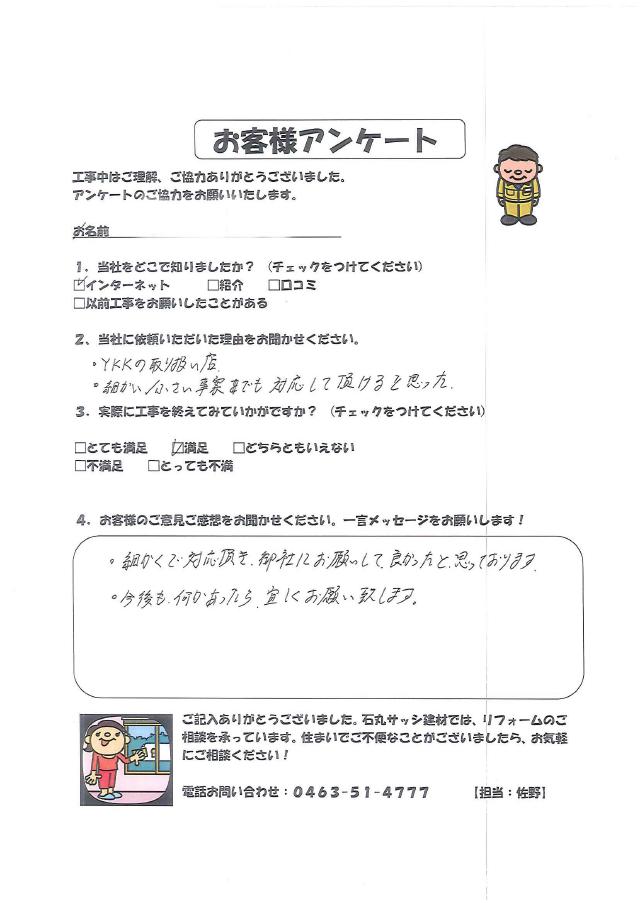 お客様アンケート
工事中はご理解、ご協力ありがとうございました。
アンケートのご協力をお願いいたします。
お名前
1．当社をどこで知りましたか？（チェックをつけてください）
☑インターネット　□紹介　□口コミ
□以前工事をお願いしたことがある
2、当社に依頼いただいた理由をお聞かせください。
・YKKの取り扱い店.
・細かい/小さい事案までも対応して頂けると思った.
3．実際に工事を終えてみていかがですか？（チェックをつけてください）
□とても満足　☑満足　□どちらともいえない
□不満足　□とっても不満
4．お客様のご意見ご感想をお聞かせください。一言メッセージをお願いします！
・細かくご対応頂き、御社にお願いして良かったと思っております.
・今後も何かあったら、宜しくお願い致します。
ご記入ありがとうございました。石丸サッシ建材では、リフォームのご
相談を承っています。住まいでご不便なことがございましたら、お気軽
にご相談ください！
電話お問い合わせ：0463-51-4777　【担当：佐野】